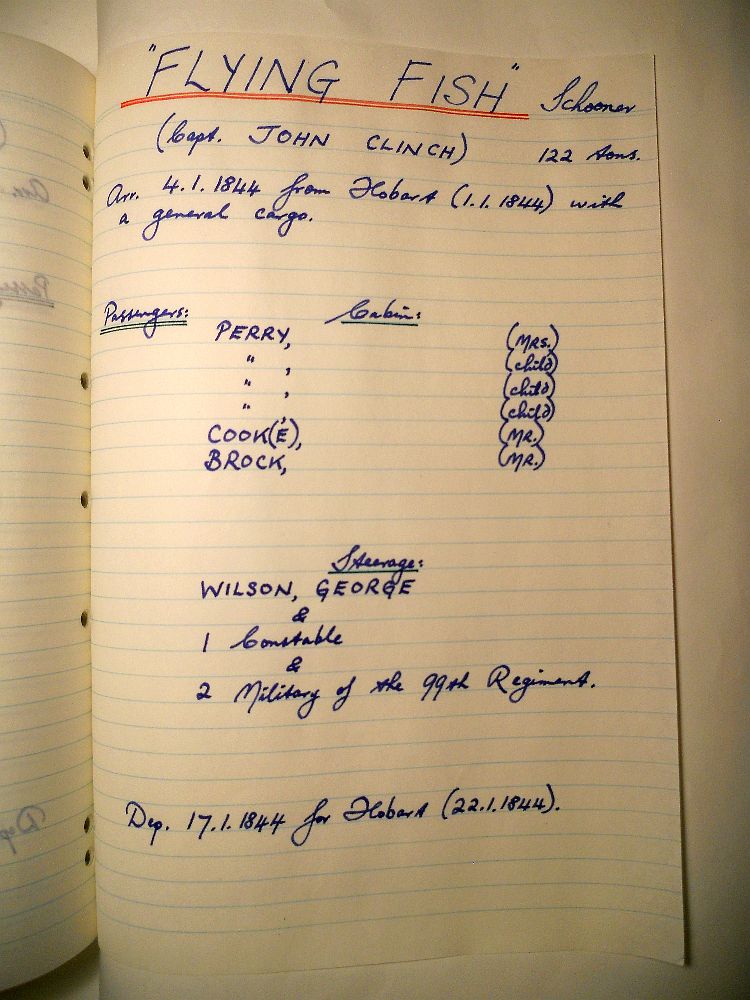 "FLYING FISH" Schooner
(Capt. JOHN CLINCH) 122 tons.
Arr. 4.1.1844 from Hobart (1.1.1844) with
a general cargo.
Passengers: Cabin:
PERRY, (MRS.)
" , (child)
" , (child)
" , (child)
COOK(E), (MR.)
BROCK, (MR.)
Steerage:
WILSON, GEORGE
&
1 Constable
&
2 Military of the 99th Regiment.
Dep. 17.1.1844 for Hobart (22.1.1844).